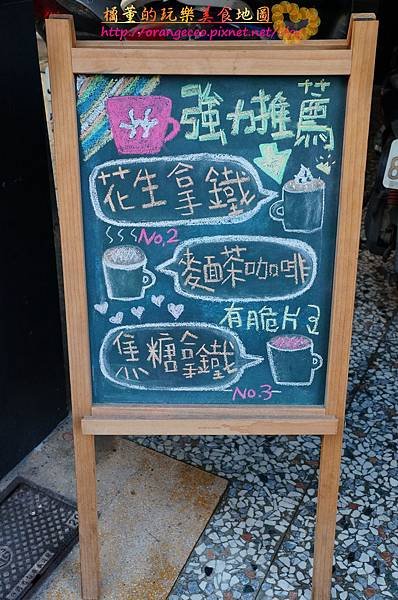 橘董的玩樂美食地圖
強力推薦
花生拿鐵
No.2
麵茶咖啡
有脆片
焦糖拿鐵
No.3